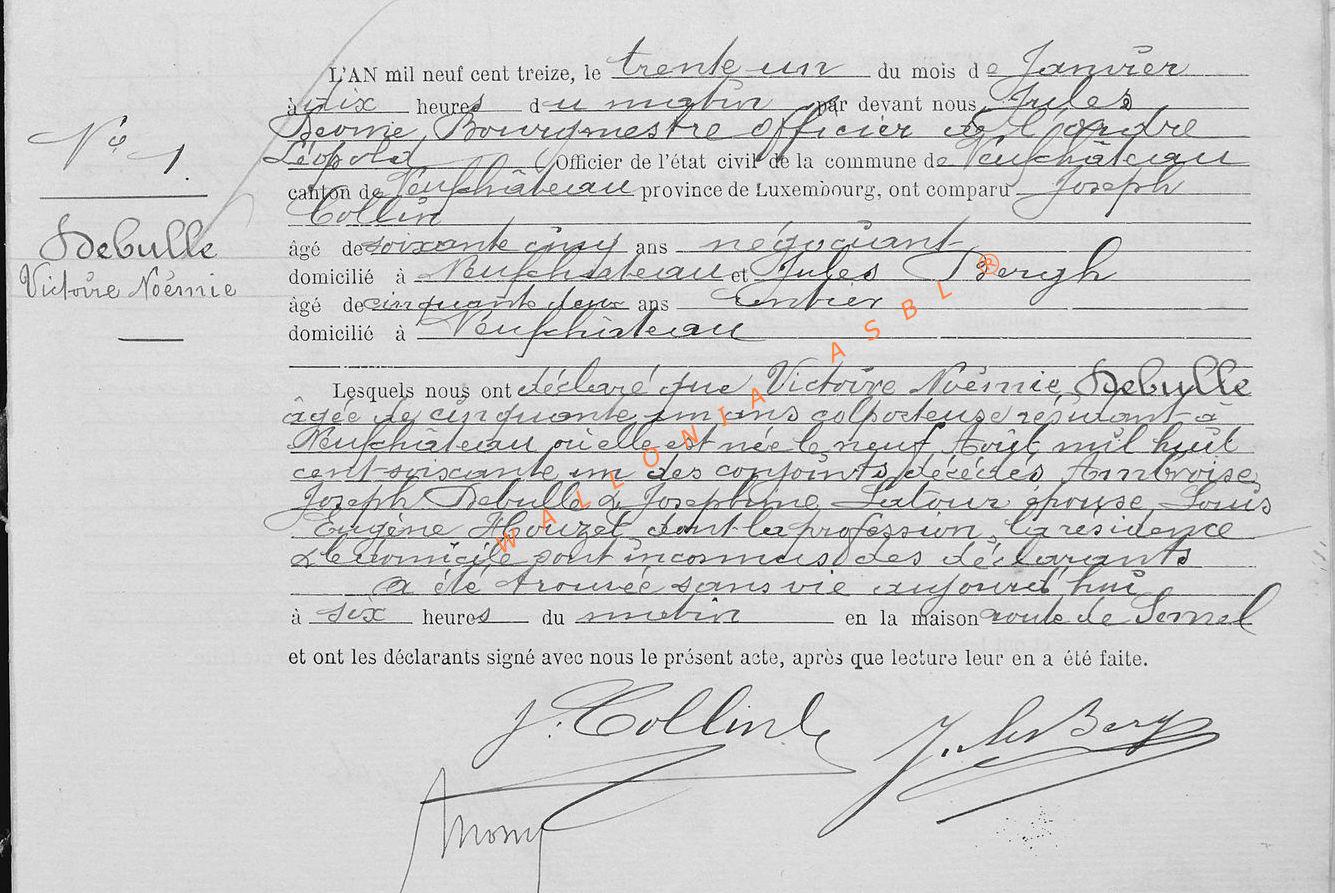 L'AN mil neuf cent treize, le trente un du mois de Janvier
à dix heures du matin par devant nous Jules
Bourgmestre Officier de l'ordre
Léopold Officier de l'état civil de la commune de Neufchâteau
canton de Neufchâteau province de Luxembourg, ont comparu Joseph
Collin
âgé de soixante cinq ans négociant
domicilié à Neufchateau et Jules Bergh
âgé de cinquante deux ans rentier
domicilié à Neufchateau
Lesquels nous ont déclaré que Victoire Noémie Debulle
âgée de cinquante un ans colporteuse résidant à
Neufchâteau où elle est née le neuf Août mil huit
cent soixante un des conjoints décédés Ambroise
Joseph Debulle & Josephine Latour épouse Louis
Eugène Houzet dont la profession, la residence
& le domicile sont inconnus des déclarants
a été trouvée sans vie aujourd'hui
à six heures du matin en la maison route de
et ont les déclarants signé avec nous le présent acte, après que lecture leur en a été faite.
J. Collin
No 1.
Debulle
Victoire Noémie
WALLONIA ASBL ®